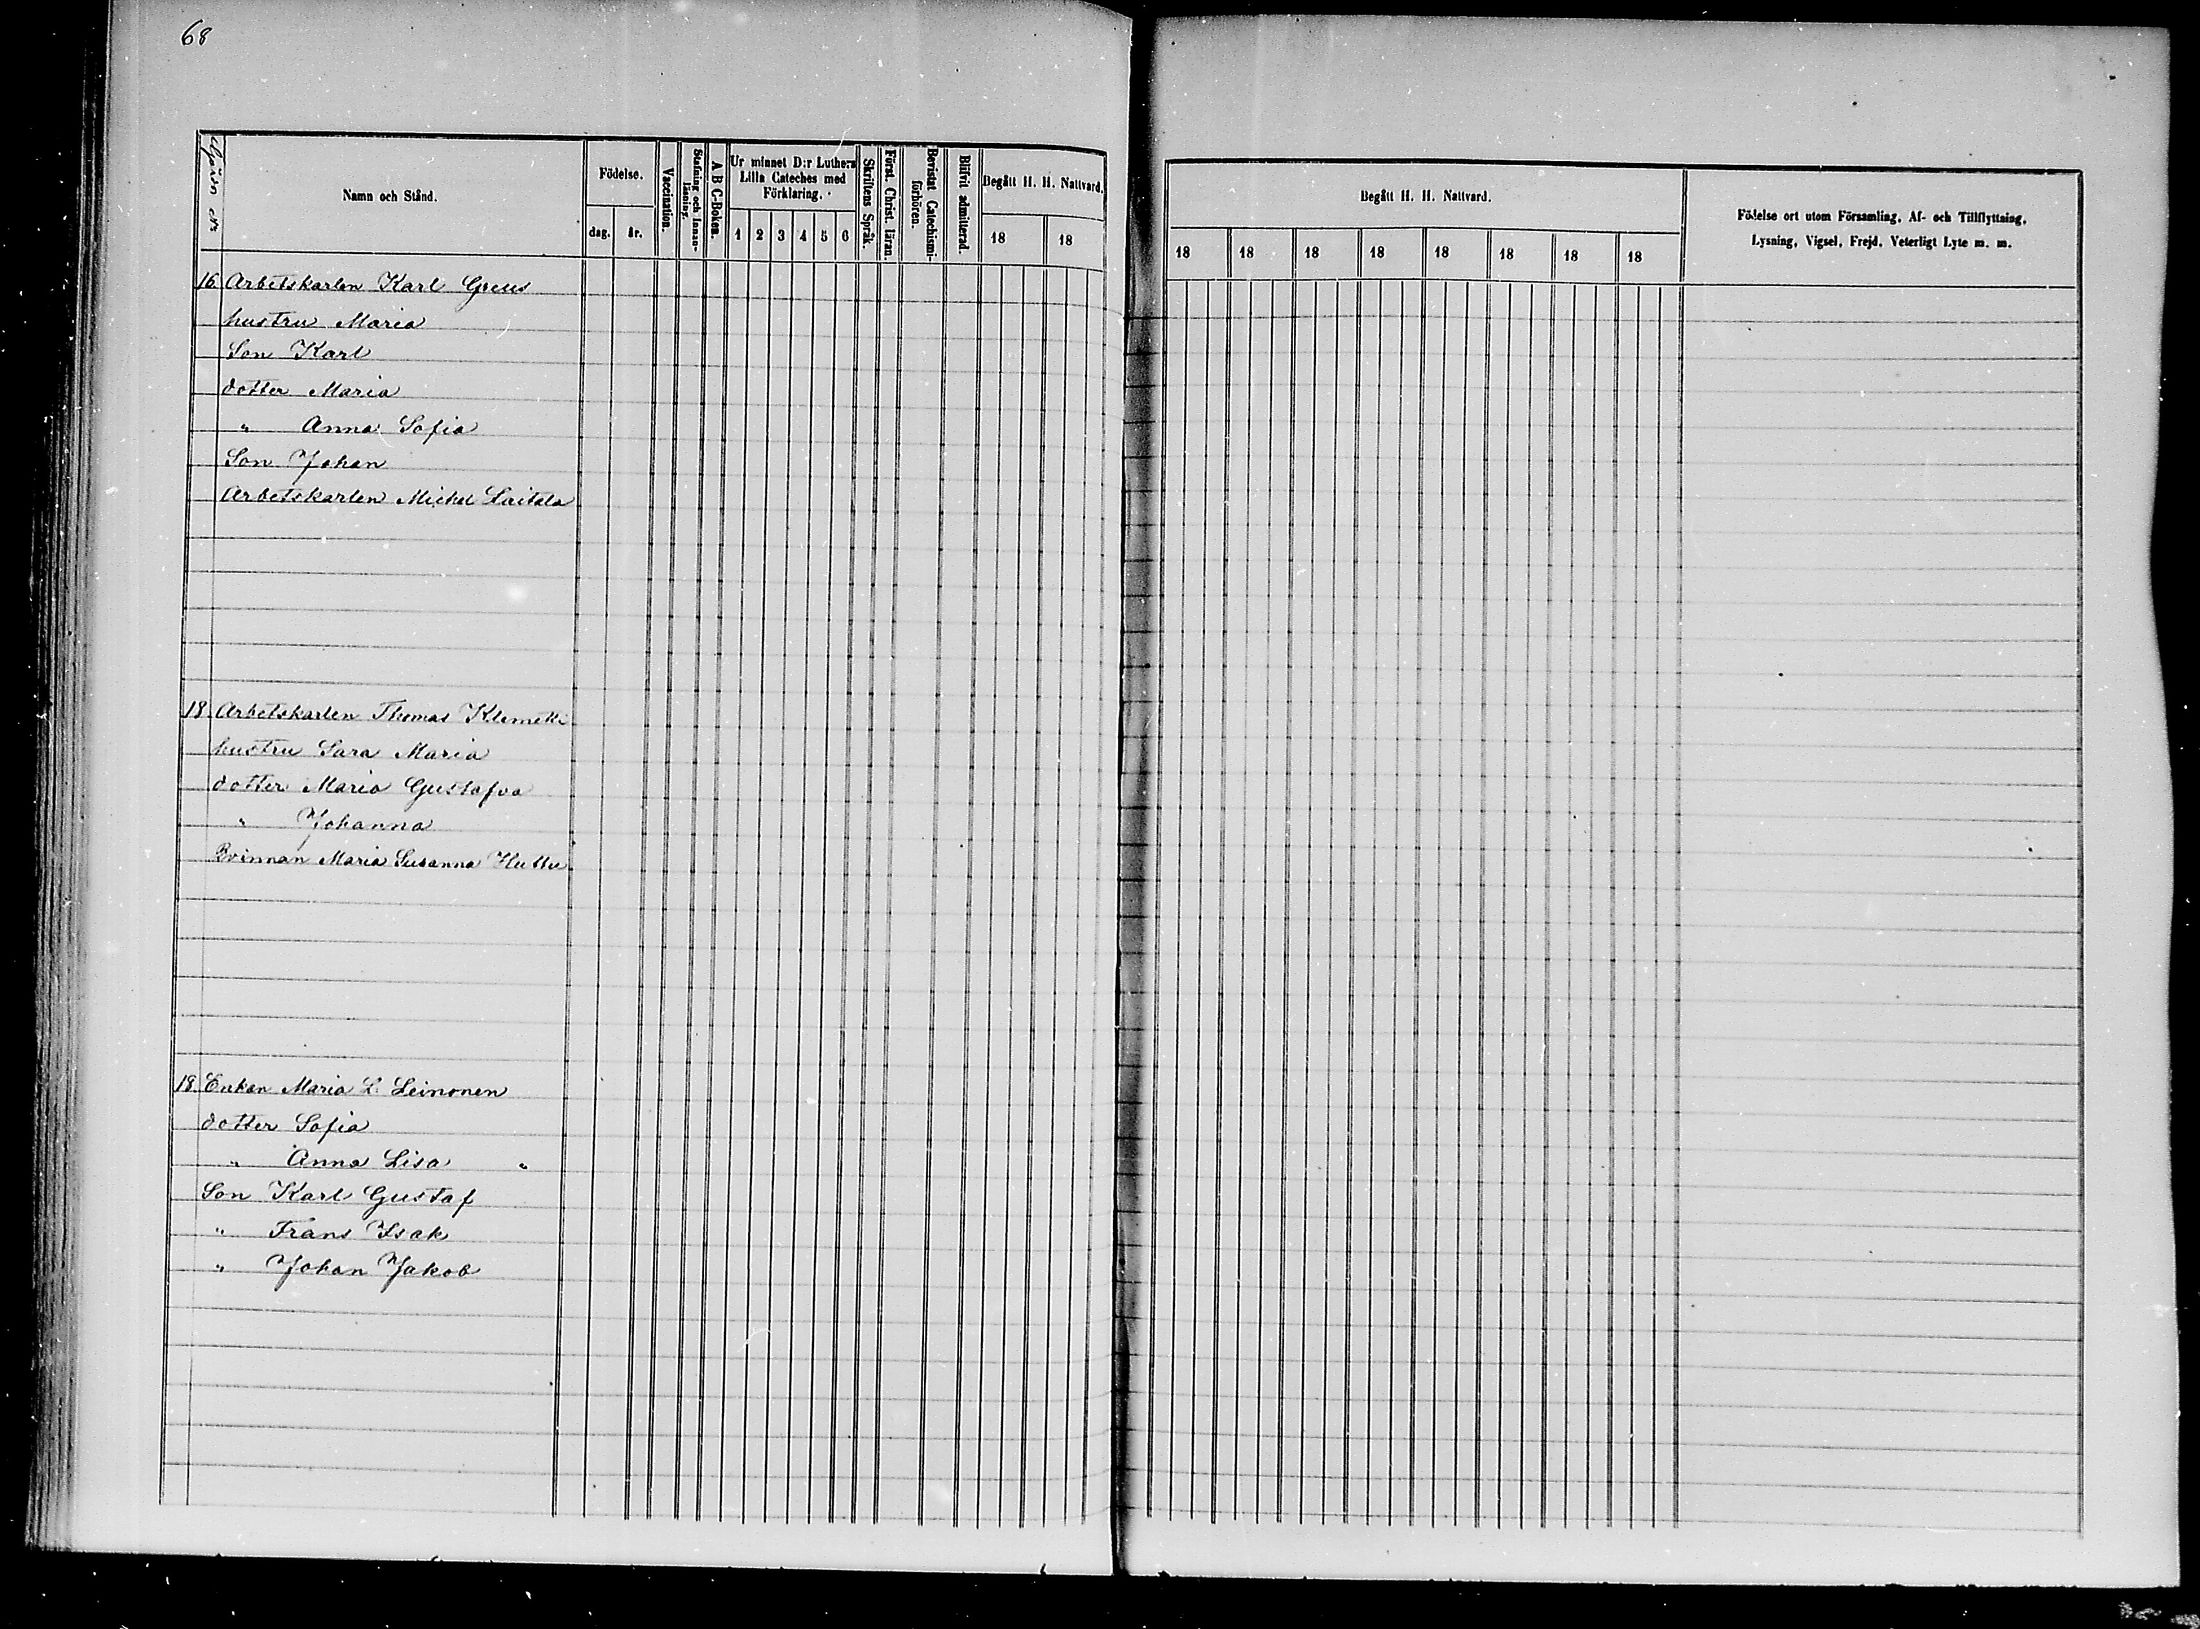 68
Gården №
Namn och Stånd.
Födelse.
dag. år.
Vaccination.
Stafning och Innan-
läsning.
A B C-Boken.
Ur minnet D:r Luthers
Lilla Cateches med
Förklaring.
1 2 3 4 5 6
Skriftens Språk.
Först. Christ. läran.
Bevistat Catechismi-
förhören.
Blifvit admitterad.
Begått H. H. Nattvard.
18 18
Begått H. H. Nattvard.
18 18 18 18 18 18 18 18
Födelse ort utom Församling, Af- och Tillflyttning,
Lysning, Vigsel, Frejd, Veterligt Lyte m. m.
16 Arbetskarlen Karl Greus
hustru Maria
Son Karl
dotter Maria
" Anna Sofia
Son Johan
Arbetskarlen Michel Laitala
18 Arbetskarlen Thomas Klemetti
hustru Sara Maria
dotter Maria Gustafva
" Johanna
Qvinnan Maria Susanna Huttu
18 Enkan Maria L. Leinonen
dotter Sofia
" Anna Lisa "
Son Karl Gustaf
" Frans Isak
" Johan Jakob